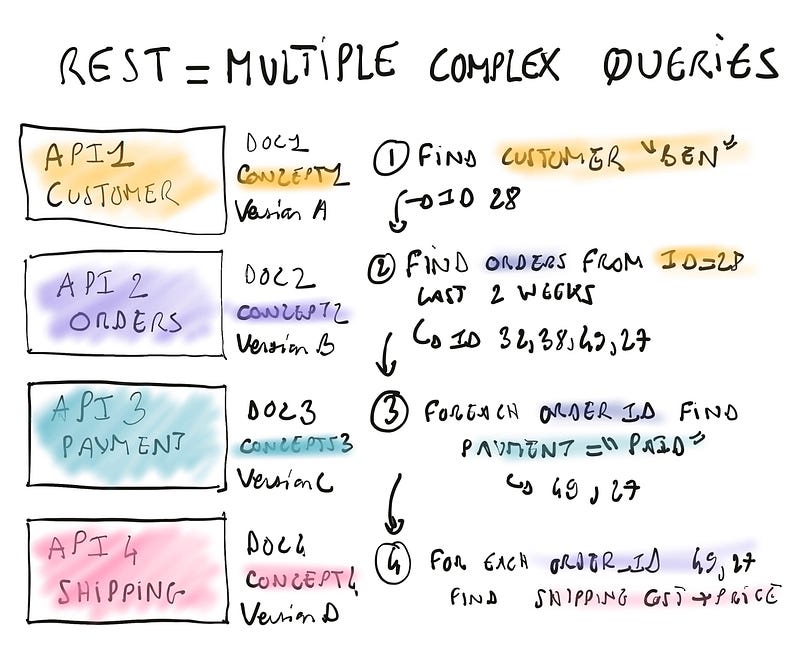 REST = MULTIPLE COMPLEX QUERIES
API1
CUSTOMER
DOC1
CONCEPT1
Version A
1 FIND CUSTOMER "BEN"
→ ID 28
API 2
ORDERS
DOC2
CONCEPT2
Version B
2 FIND ORDERS FROM ID=28
LAST 2 WEEKS
↳ ID 32,38,49,27
API 3
PAYMENT
DOC3
CONCEPTS3
Version C
3 FOREACH ORDER ID FIND
PAYMENT = "PAID"
↳ 49, 27
API 4
SHIPPING
DOC4
CONCEPT4
Version D
4 FOR EACH ORDER_ID 49,27
FIND SHIPPING COST → PRICE